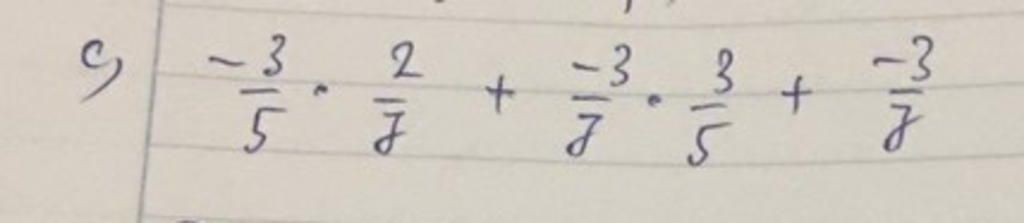 c) \frac{-3}{5} \cdot \frac{2}{7} + \frac{-3}{7} \cdot \frac{3}{5} + \frac{-3}{7}